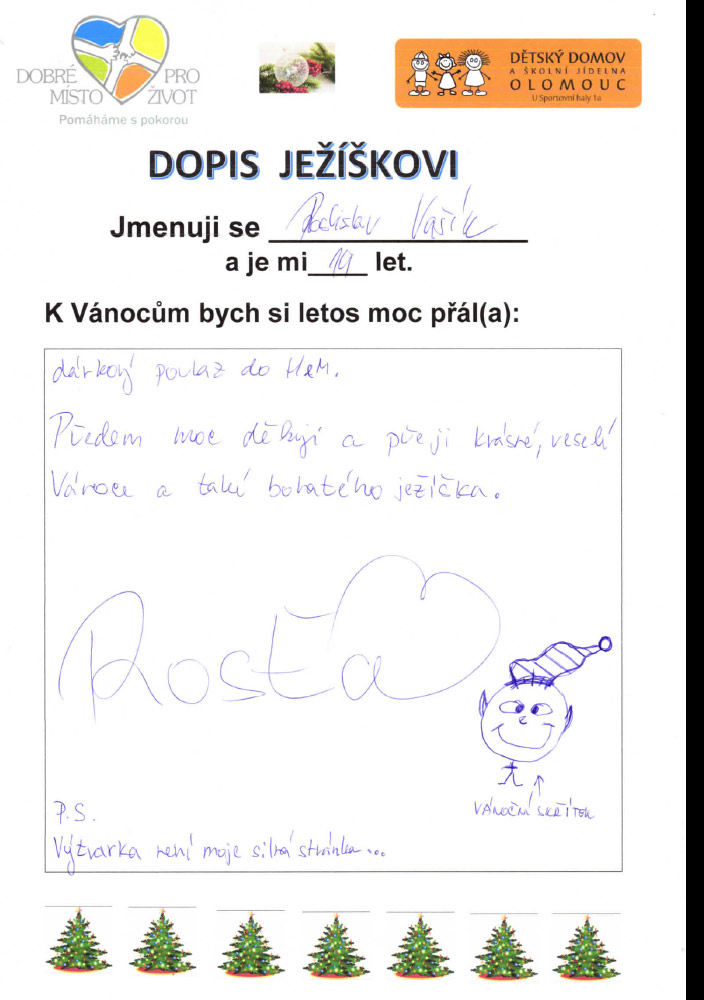 DOBRÉ PRO
MÍSTO ŽIVOT
Pomáháme s pokorou
DĚTSKÝ DOMOV
A ŠKOLNÍ JÍDELNA
OLOMOUC
U Sportovní haly 1a
DOPIS JEŽÍŠKOVI
Jmenuji se Vašík
a je mi 19 let.
K Vánocům bych si letos moc přál(a):
dárkový poukaz do H&M.
Předem moc děkuji a přeji krásné, veselé
Vánoce a také bohatého ježíčka.
Rosťa
VÁNOČNÍ SKŘÍTEK
P.S.
Výtvarka není moje silná stránka...